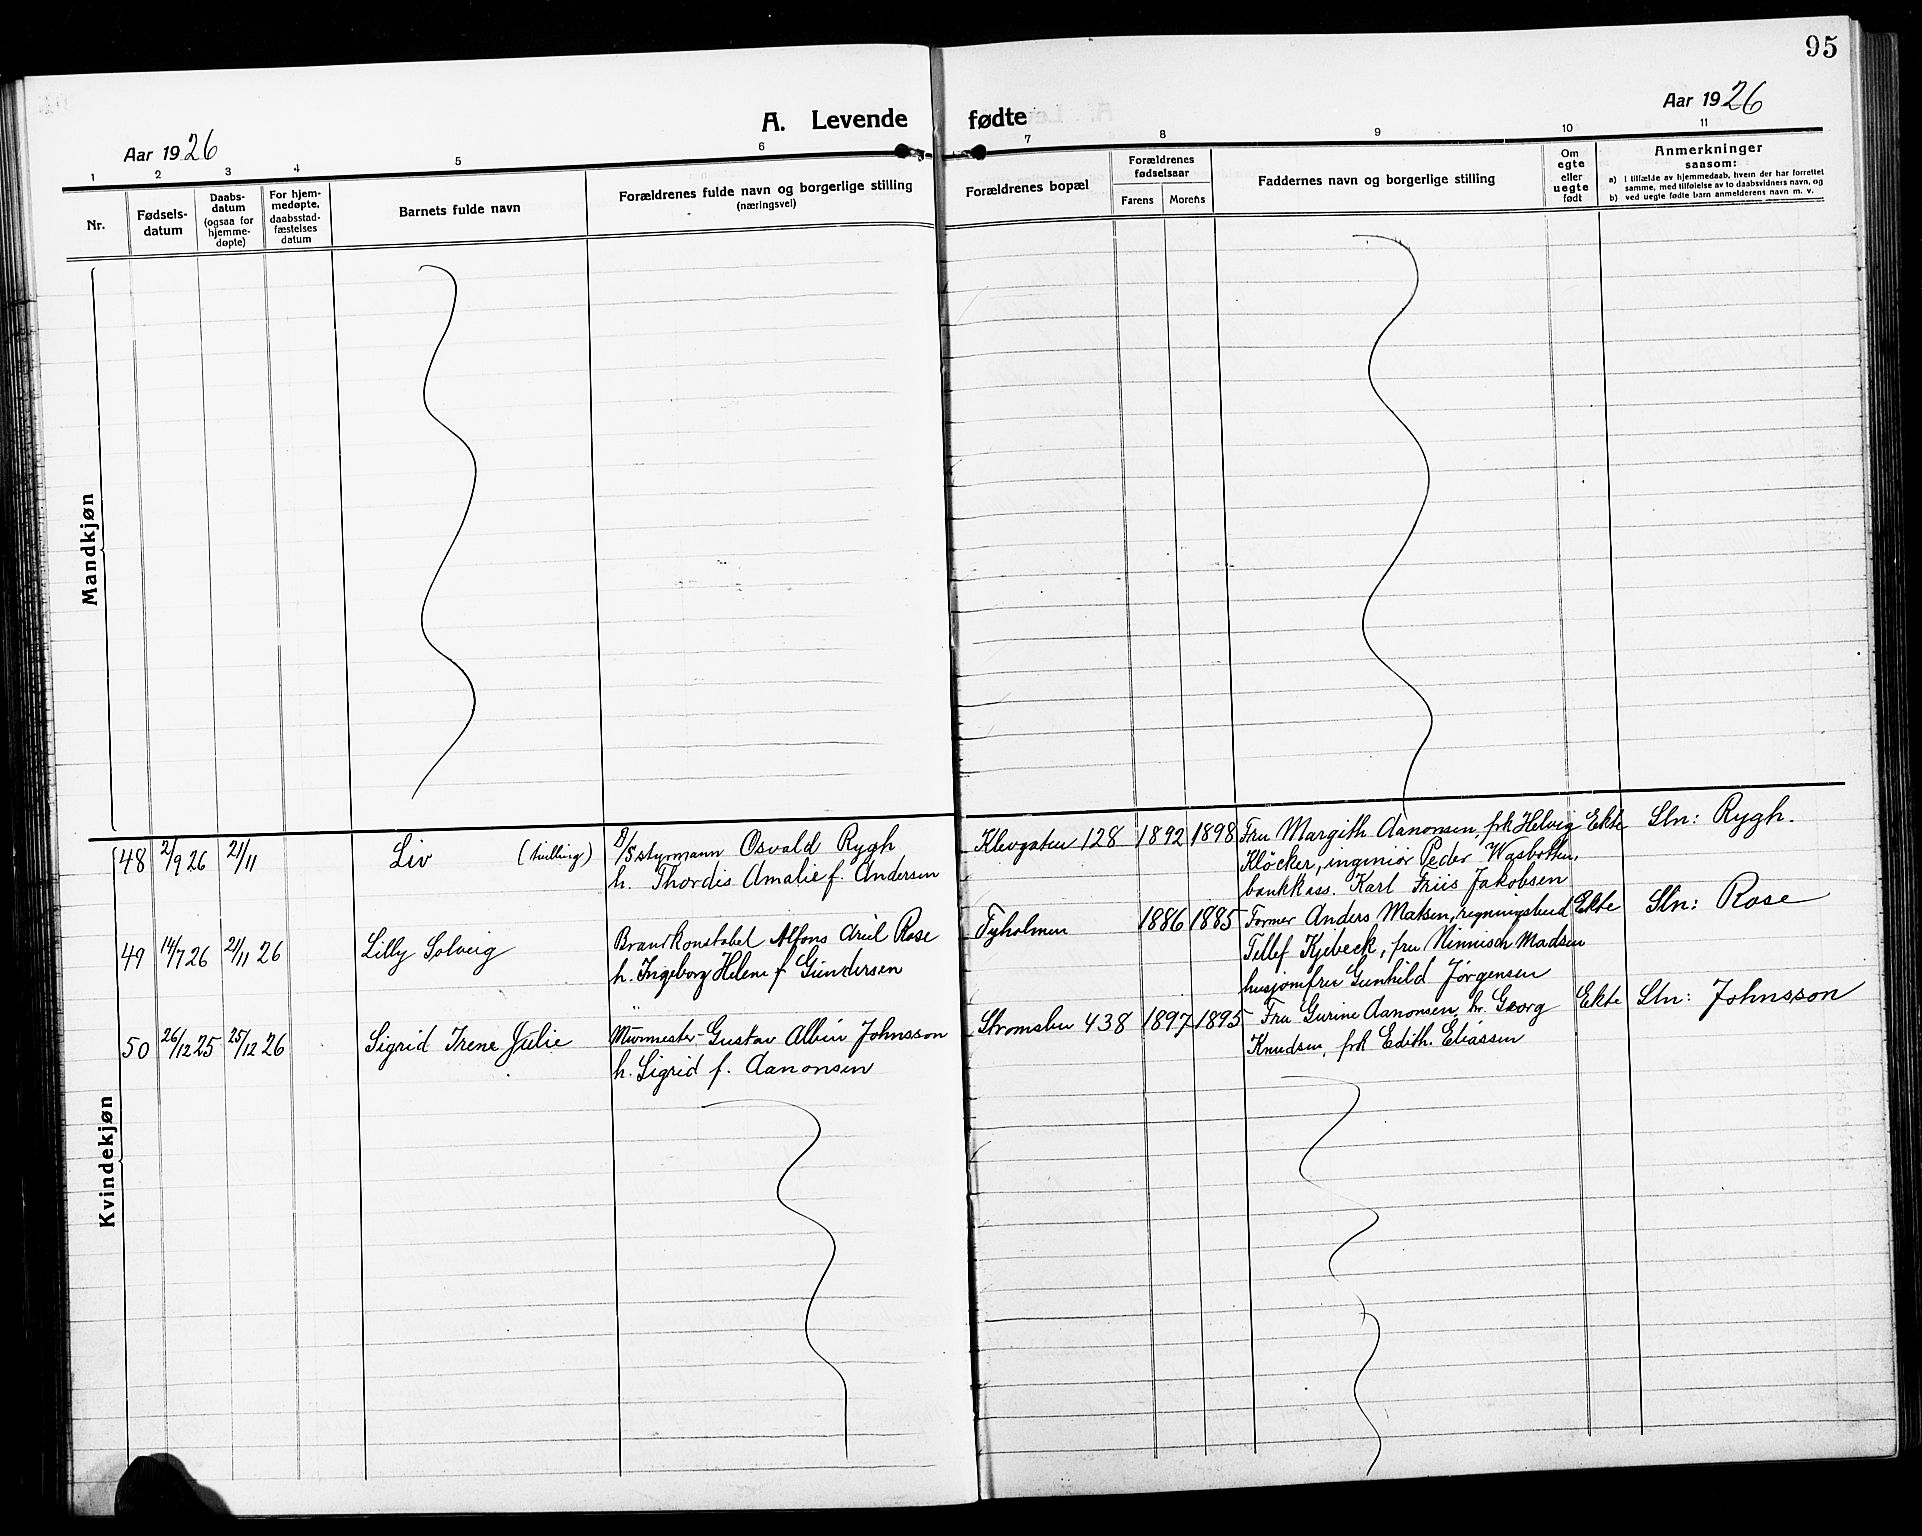 95
A. Levende fødte
Aar 1926
Aar 1926
1
2
3
4
5
6
7
8
9
10
11
Nr.
Fødsels-
datum
Daabs-
datum
(ogsaa for
hjemme-
døpte)
For hjem-
medøpte,
daabsstad-
fæstelses
datum
Barnets fulde navn
Forældrenes fulde navn og borgerlige stilling
(næringsvei)
Forældrenes bopæl
Forældrenes
fødselsaar
Farens
Morens
Faddernes navn og borgerlige stilling
Om
egte
eller
uegte
født
Anmerkninger
saasom:
a) I tilfælde av hjemmedaab, hvem der har forrettet
samme, med tilføielse av to daabsvidners navn, og
b) ved uegte fødte barn anmelderens navn m. v.
Mandkjøn
Kvindekjøn
48 2/9 26 21/11 Liv (tvilling)
D/S styrmann Osvald Rygh
h. Thordis Amalie f. Andersen
Klevgaten 128 1892 1898
Fru Margith Aanonsen, frk Helvig
Klöcker, ingeniør Peder Wasbotten,
bankkass. Karl Friis Jakobsen
Ekte Sln: Rygh.
49 14/7 26 21/11 26 Lilly Solveig
Brandkonstabel Alfons Rose
h. Ingeborg Helene f. Gundersen
Tyholmen 1886 1885
Former Anders Matsen, regningsbud
Tellef Kjebeck, fru Madsen
husjomfru Gunhild Jørgensen
Ekte Sln: Rose
50 26/12 25 25/12 26 Sigrid Irene Julie
Murmester Gustav Albin Johnsson
h. Sigrid f. Aanonsen
Strømsbu 438 1897 1895
Fru Gurine Aanonsen, hr. Georg
Knudsen, frk Edith Eliassen
Ekte Sln: Johnsson